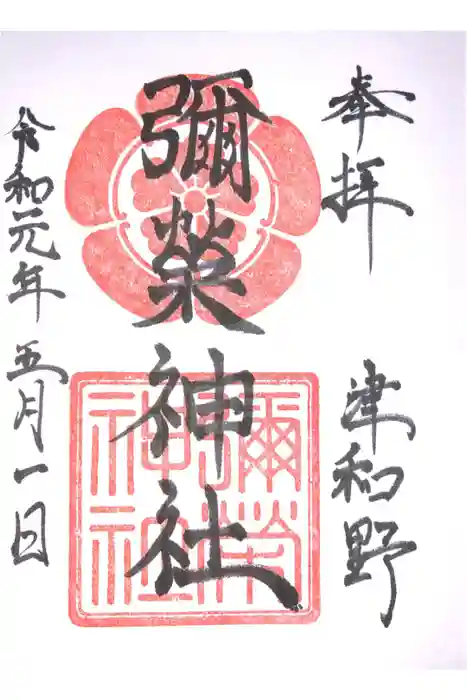 奉拝
津和野
彌榮神社
彌榮
神社
令和元年五月一日